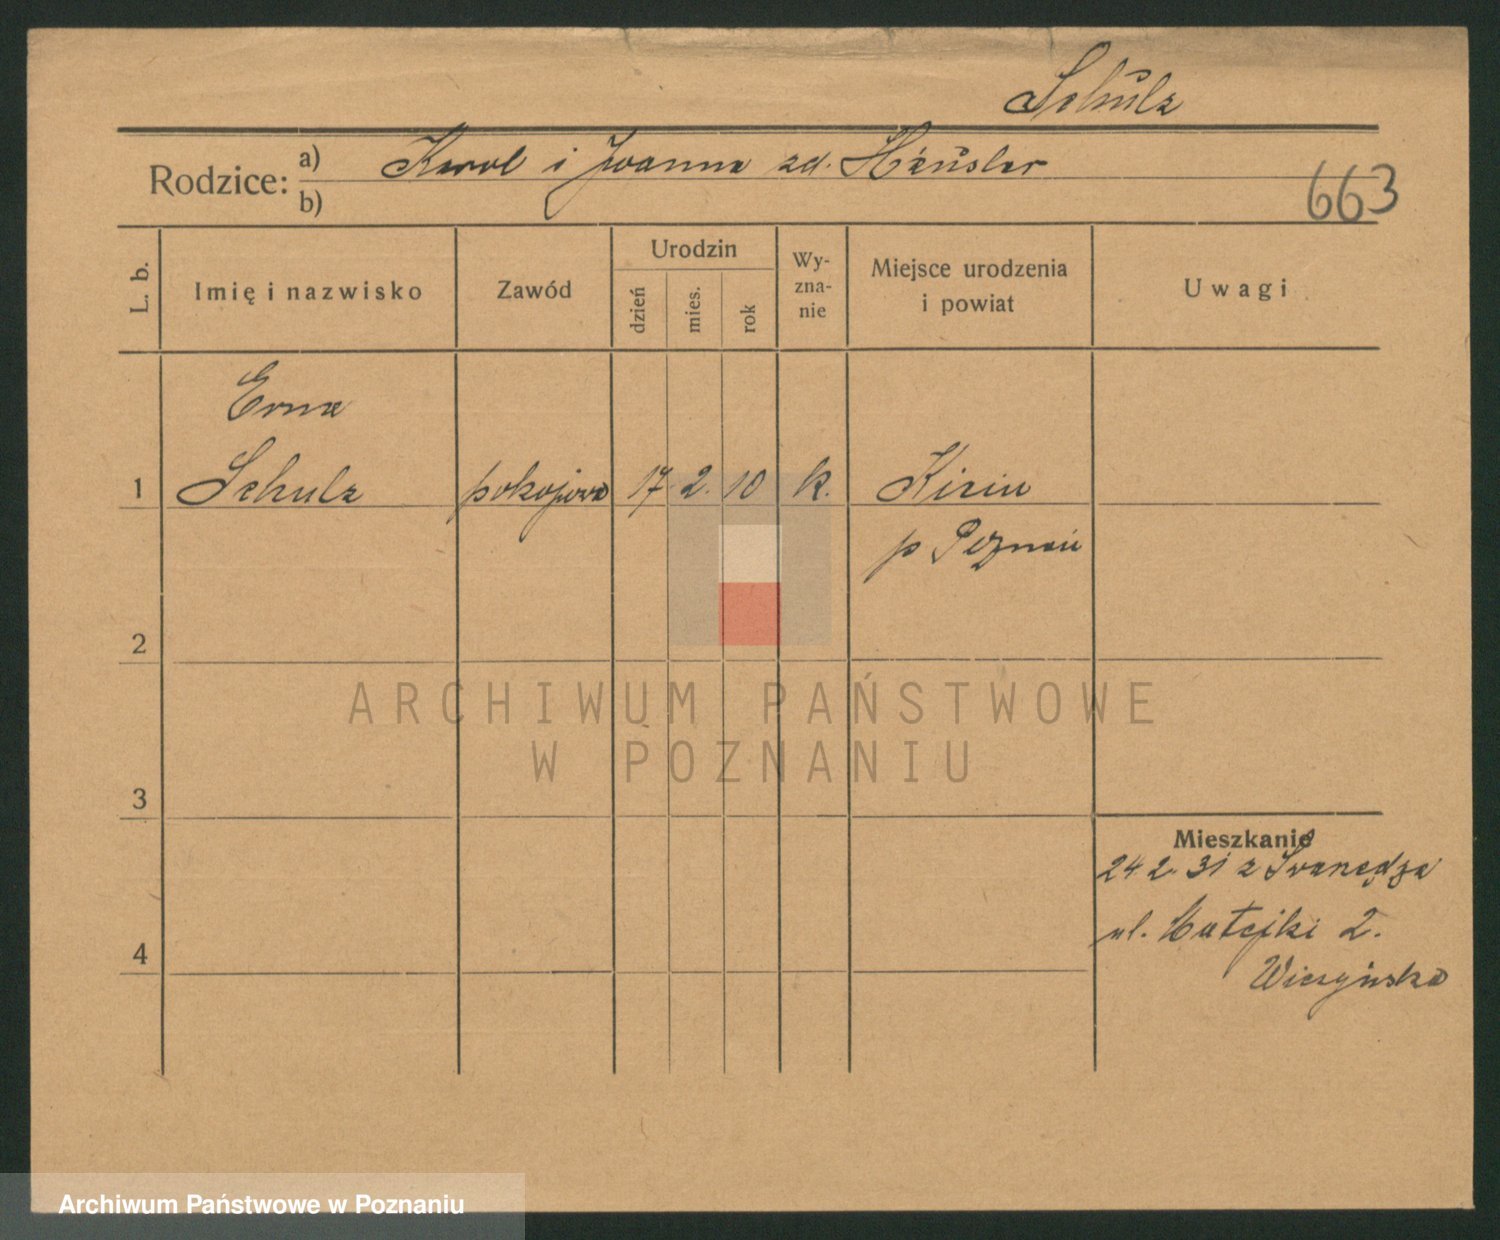 Schulz
Rodzice: a) Karol i Joanna zd. Häusler
b)
663
L. b.
Imię i nazwisko
Zawód
Urodzin
dzień
mies.
rok
Wy-
zna-
nie
Miejsce urodzenia
i powiat
Uwagi
Erna
1 Schulz pokojowa 17 2. 10 k. Kicin
p Poznań
2
3
4
Mieszkanie
24 2. 31 z Swarzędza
ul. Matejki 2.
ARCHIWUM PAŃSTWOWE
W POZNANIU
Archiwum Państwowe w Poznaniu